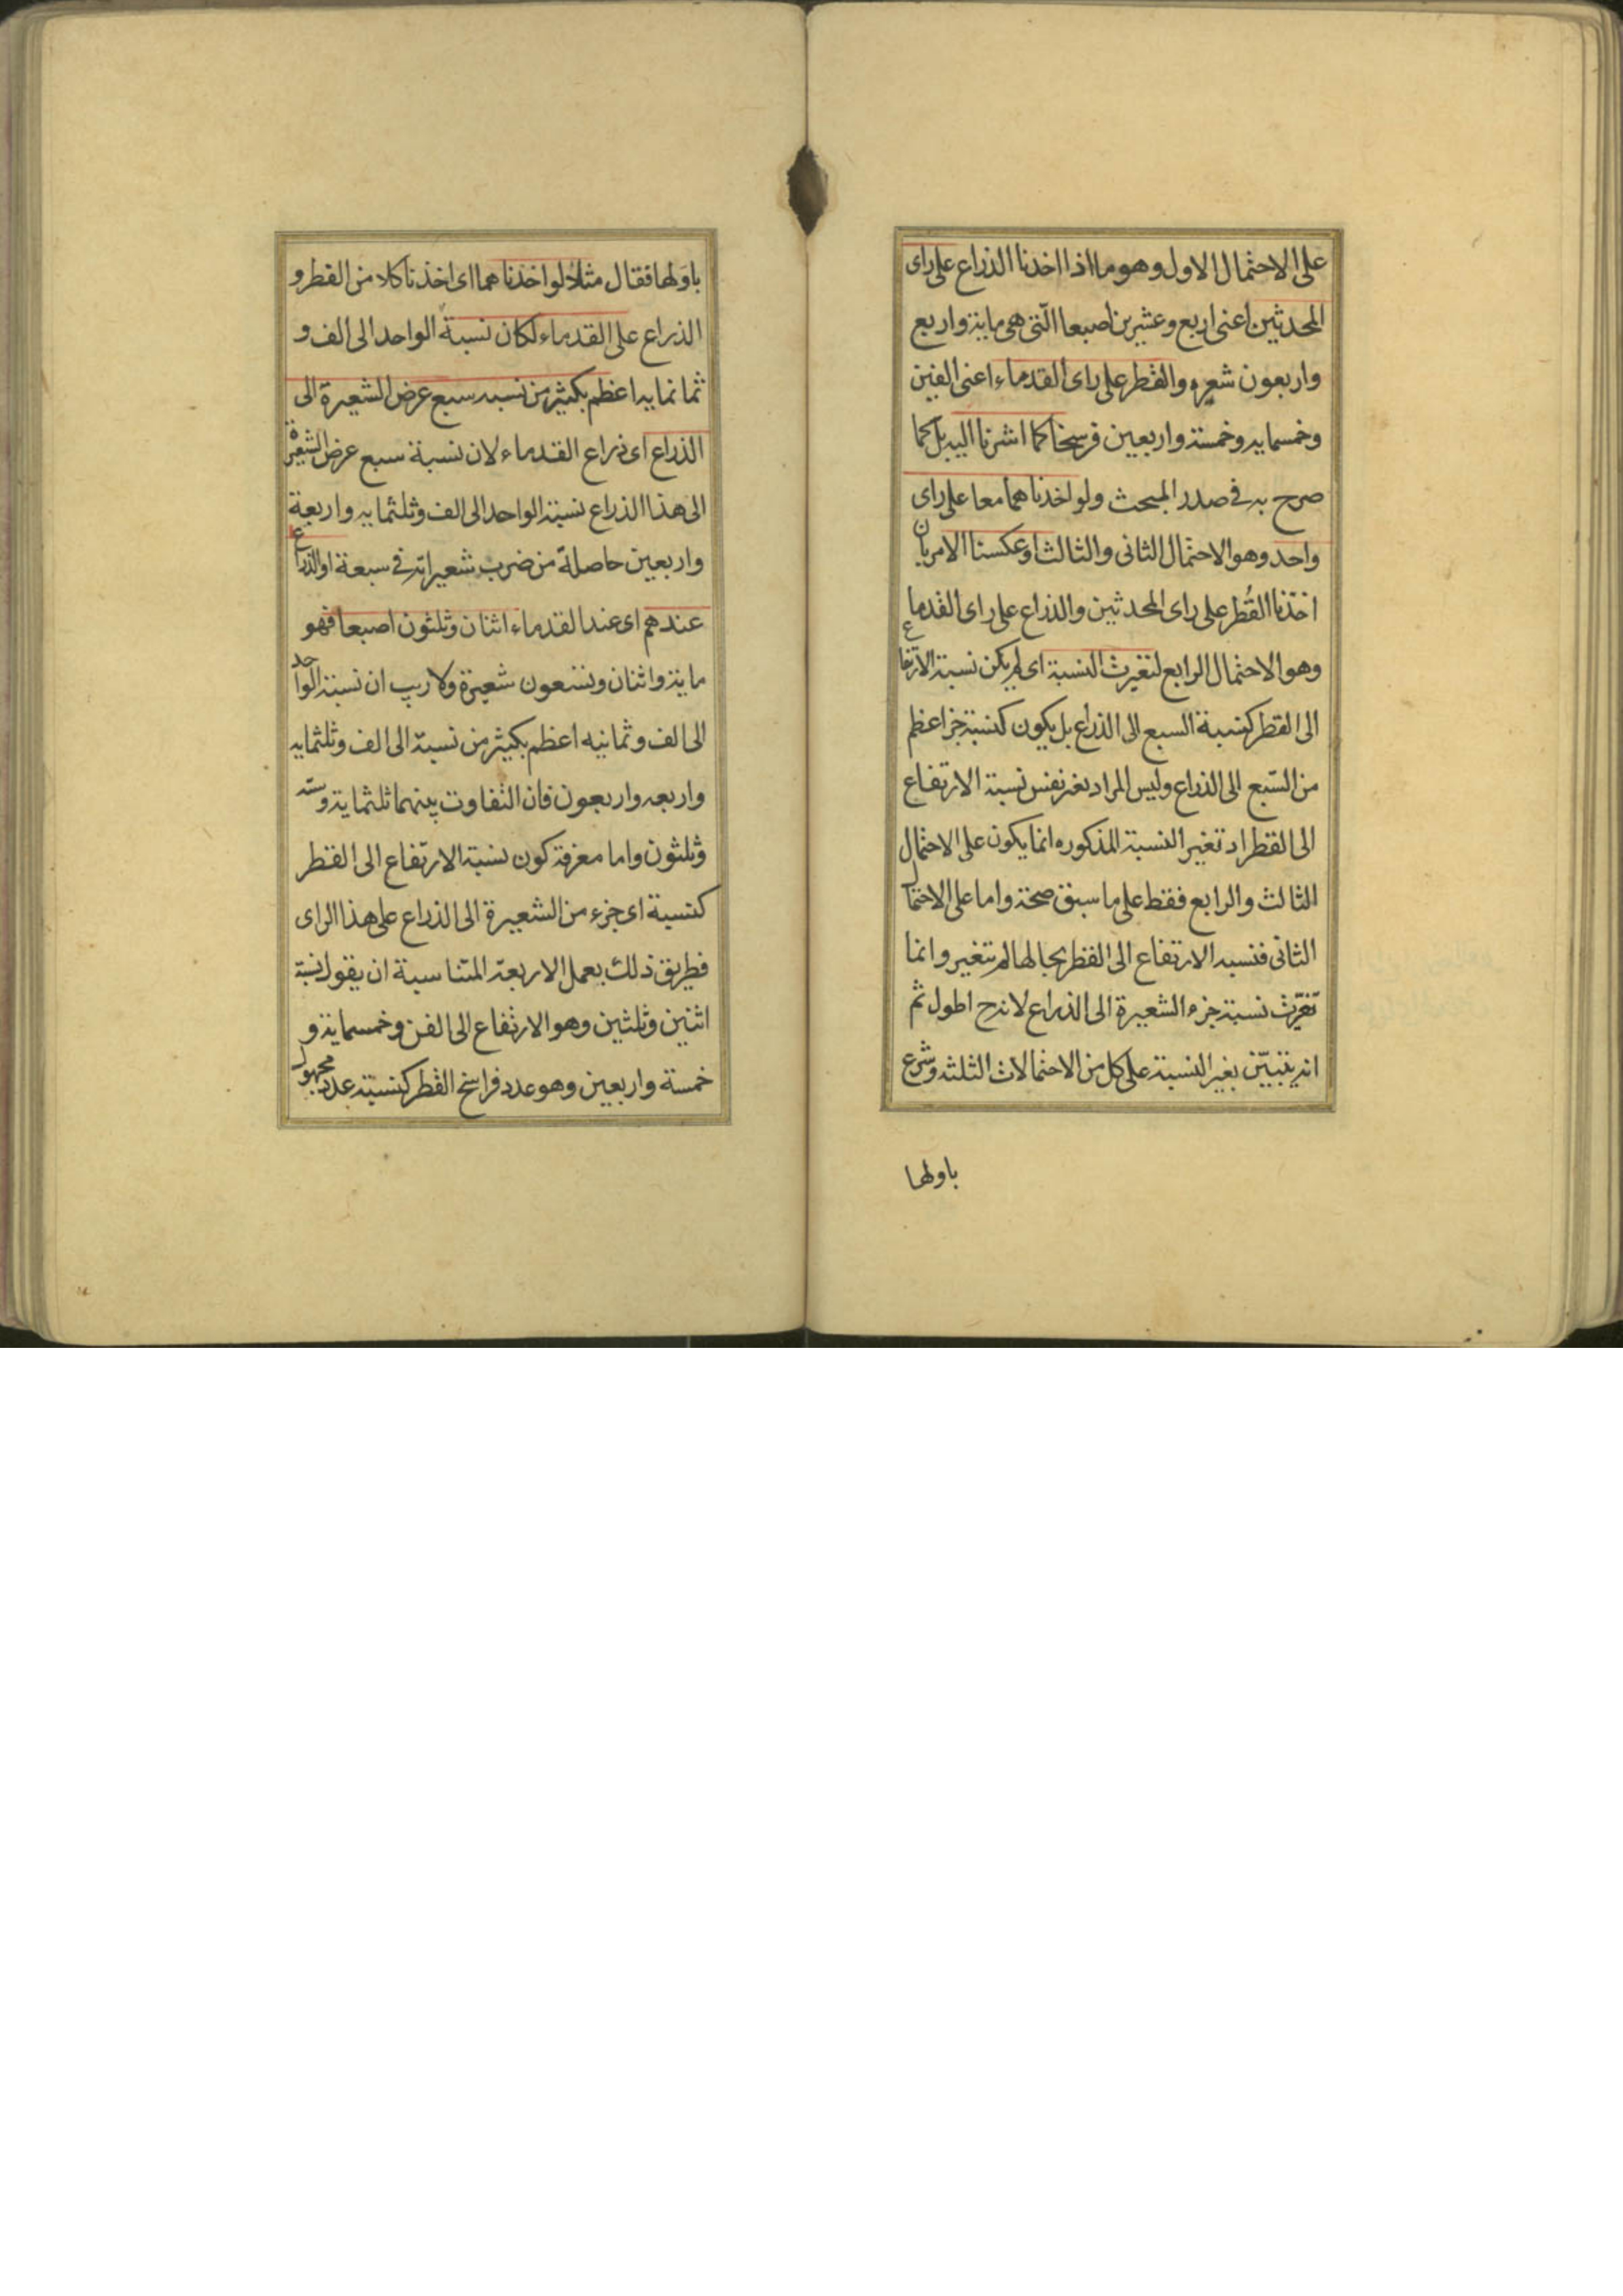 على الاحتمال الاول وهو ما اذا اخذنا الذراع على راى
المحدثين اعنى اربع وعشرين اصبعا الّتى هى ماية واربع
واربعون شعيره والقطر على راى القدماء اعنى الفين
وخمسمايه وخمسة واربعين فرسخا كما اشرنا اليه بل كما
صرح به فى صدر المبحث ولو اخذناهما معا على راى
واحد وهو الاحتمال الثانى والثالث او عكسنا الامر بان
اخذنا القُطر على راى المحدثين والذراع على راى القدما
وهو الاحتمال الرابع لتغيرت النسبة اى لم يكن نسبة الارتفاع
الى القطر كنسبة السبع الى الذراع بل يكون كنسبة جزء اعظم
من السّبع الى الذراع وليس المراد تغير نفس نسبة الارتفاع
الى القطر اذ تغير النسبة المذكوره انما يكون على الاحتمال
الثالث والرابع فقط على ما سبق صحة واما على الاحتمال
الثانى فنسبه الارتفاع الى القطر بحالها لم تتغير وانما
تغيّرت نسبة جزء الشعيرة الى الذراع لانه ح اطول ثم
انه يتبيّن بغير النسبة على كل من الاحتمالات الثلثه وشرع
باولها
باوَلها فقال مثلا لو اخذناهما اى اخذنا كلا من القطر و
الذراع على القدماء لكان نسبة الواحد الى الف و
ثمانمايه اعظم بكثير من نسبه سبع عرض الشعيرة الى
الذراع اى ذراع القدماء لان نسبة سبع عرض الشعيرة
الى هذا الذراع نسبة الواحد الى الف وثلثمايه واربعة
واربعين حاصلة من ضرب شعيراته فى سبعة او الذراع
عندهم اى عند القدماء اثنان وثلثون اصبعا فهو
ماية واثنان وتسعون شعيرة ولا ريب ان نسبة الواحد
الى الف وثمانيه اعظم بكثير من نسبة الى الف وثلثمايه
واربعه واربعون فان التفاوت بينهما ثلثماية وستّه
وثلثون واما معرفة كون نسبة الارتفاع الى القطر
كنسبة اى جزء من الشعيرة الى الذراع على هذا الراى
فطريق ذلك بعمل الاربعة المتناسبة ان يقول نسبة
اثنين وثلثين وهو الارتفاع الى الفين وخمسماية و
خمسة واربعين وهو عدد فراسخ القطر كنسبة عدد مجهول